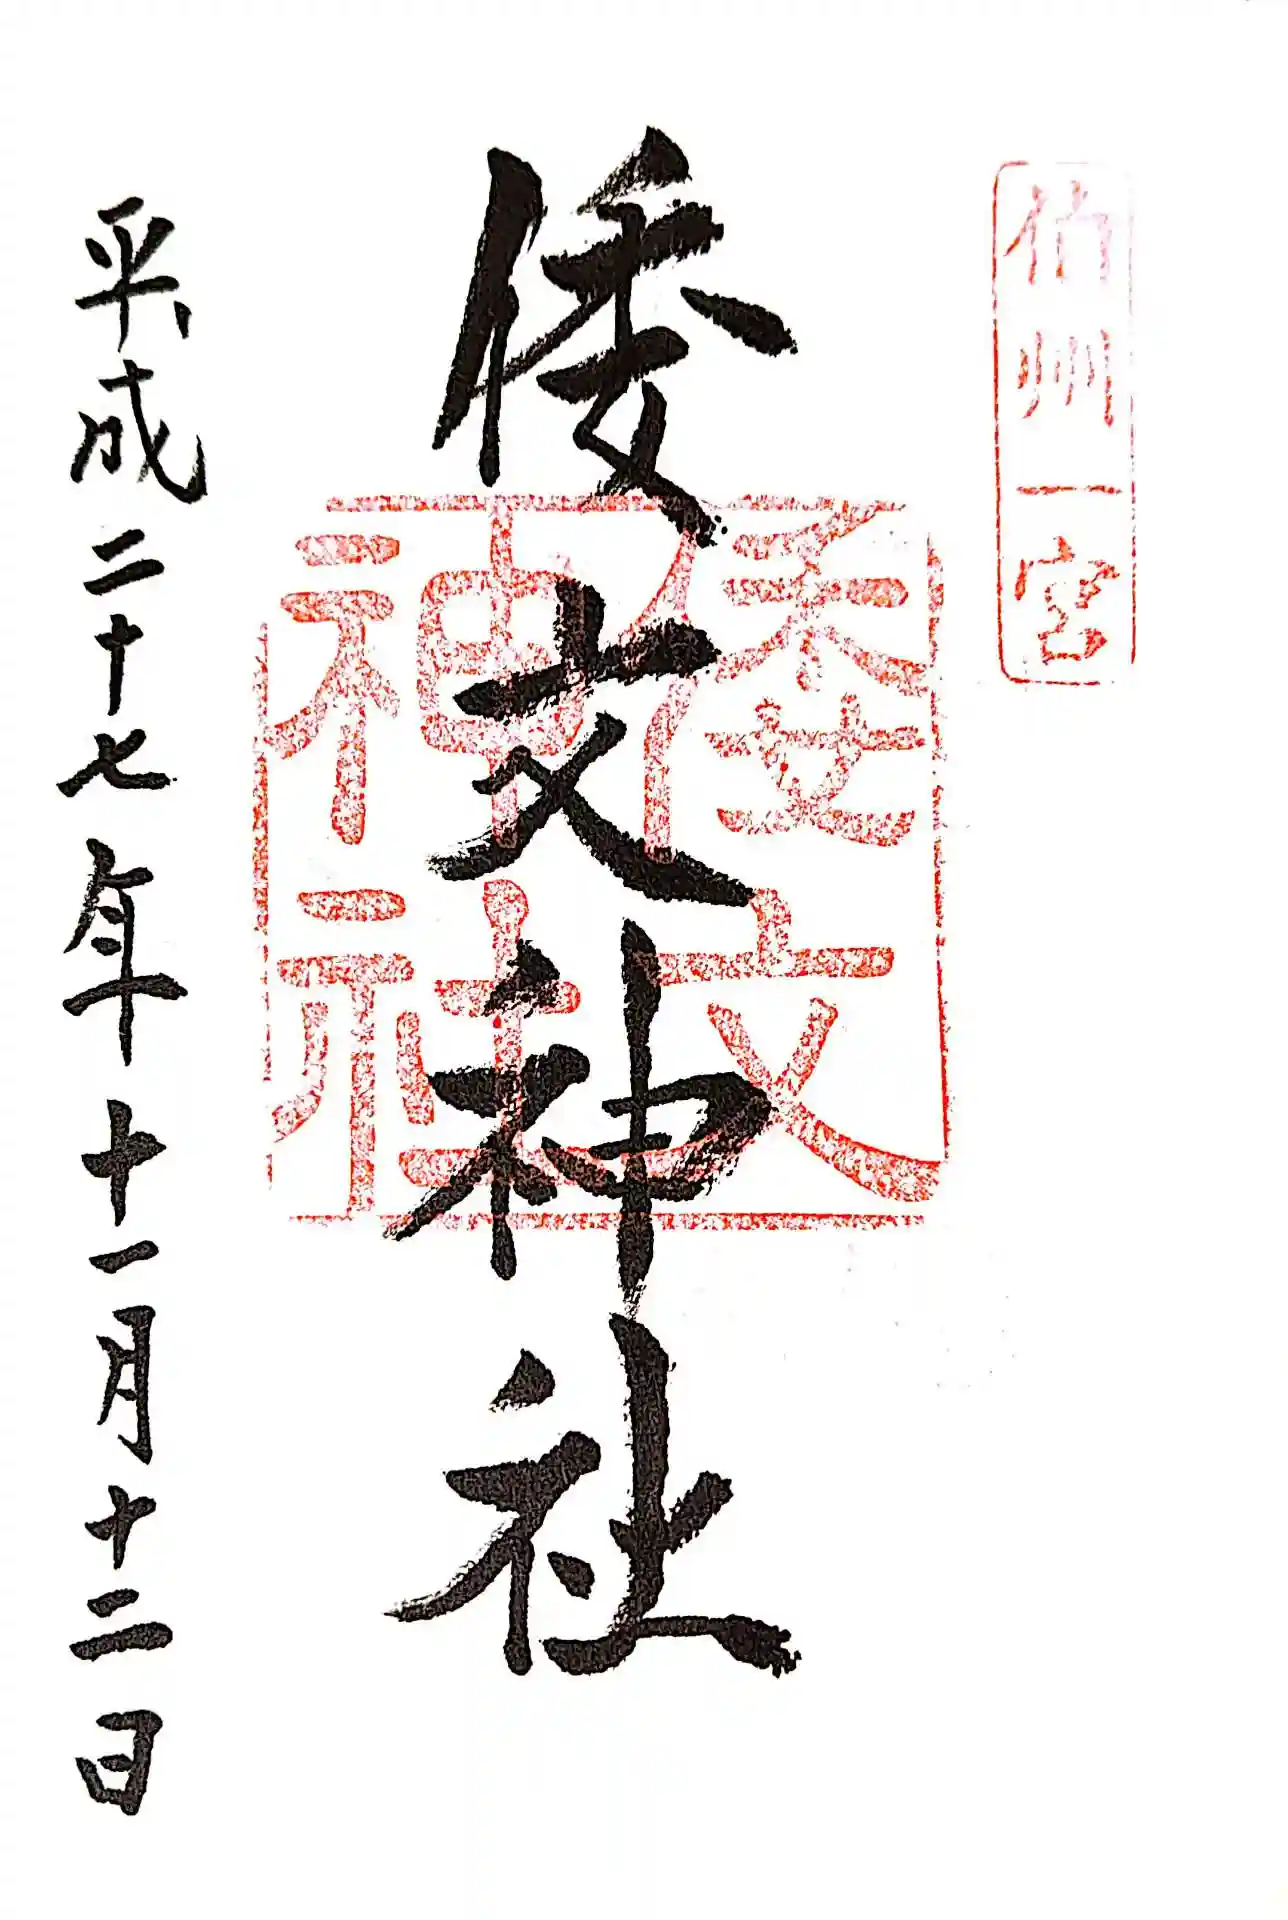 伯州一宮
倭文神社
倭文
神社
平成二十七年十一月十二日